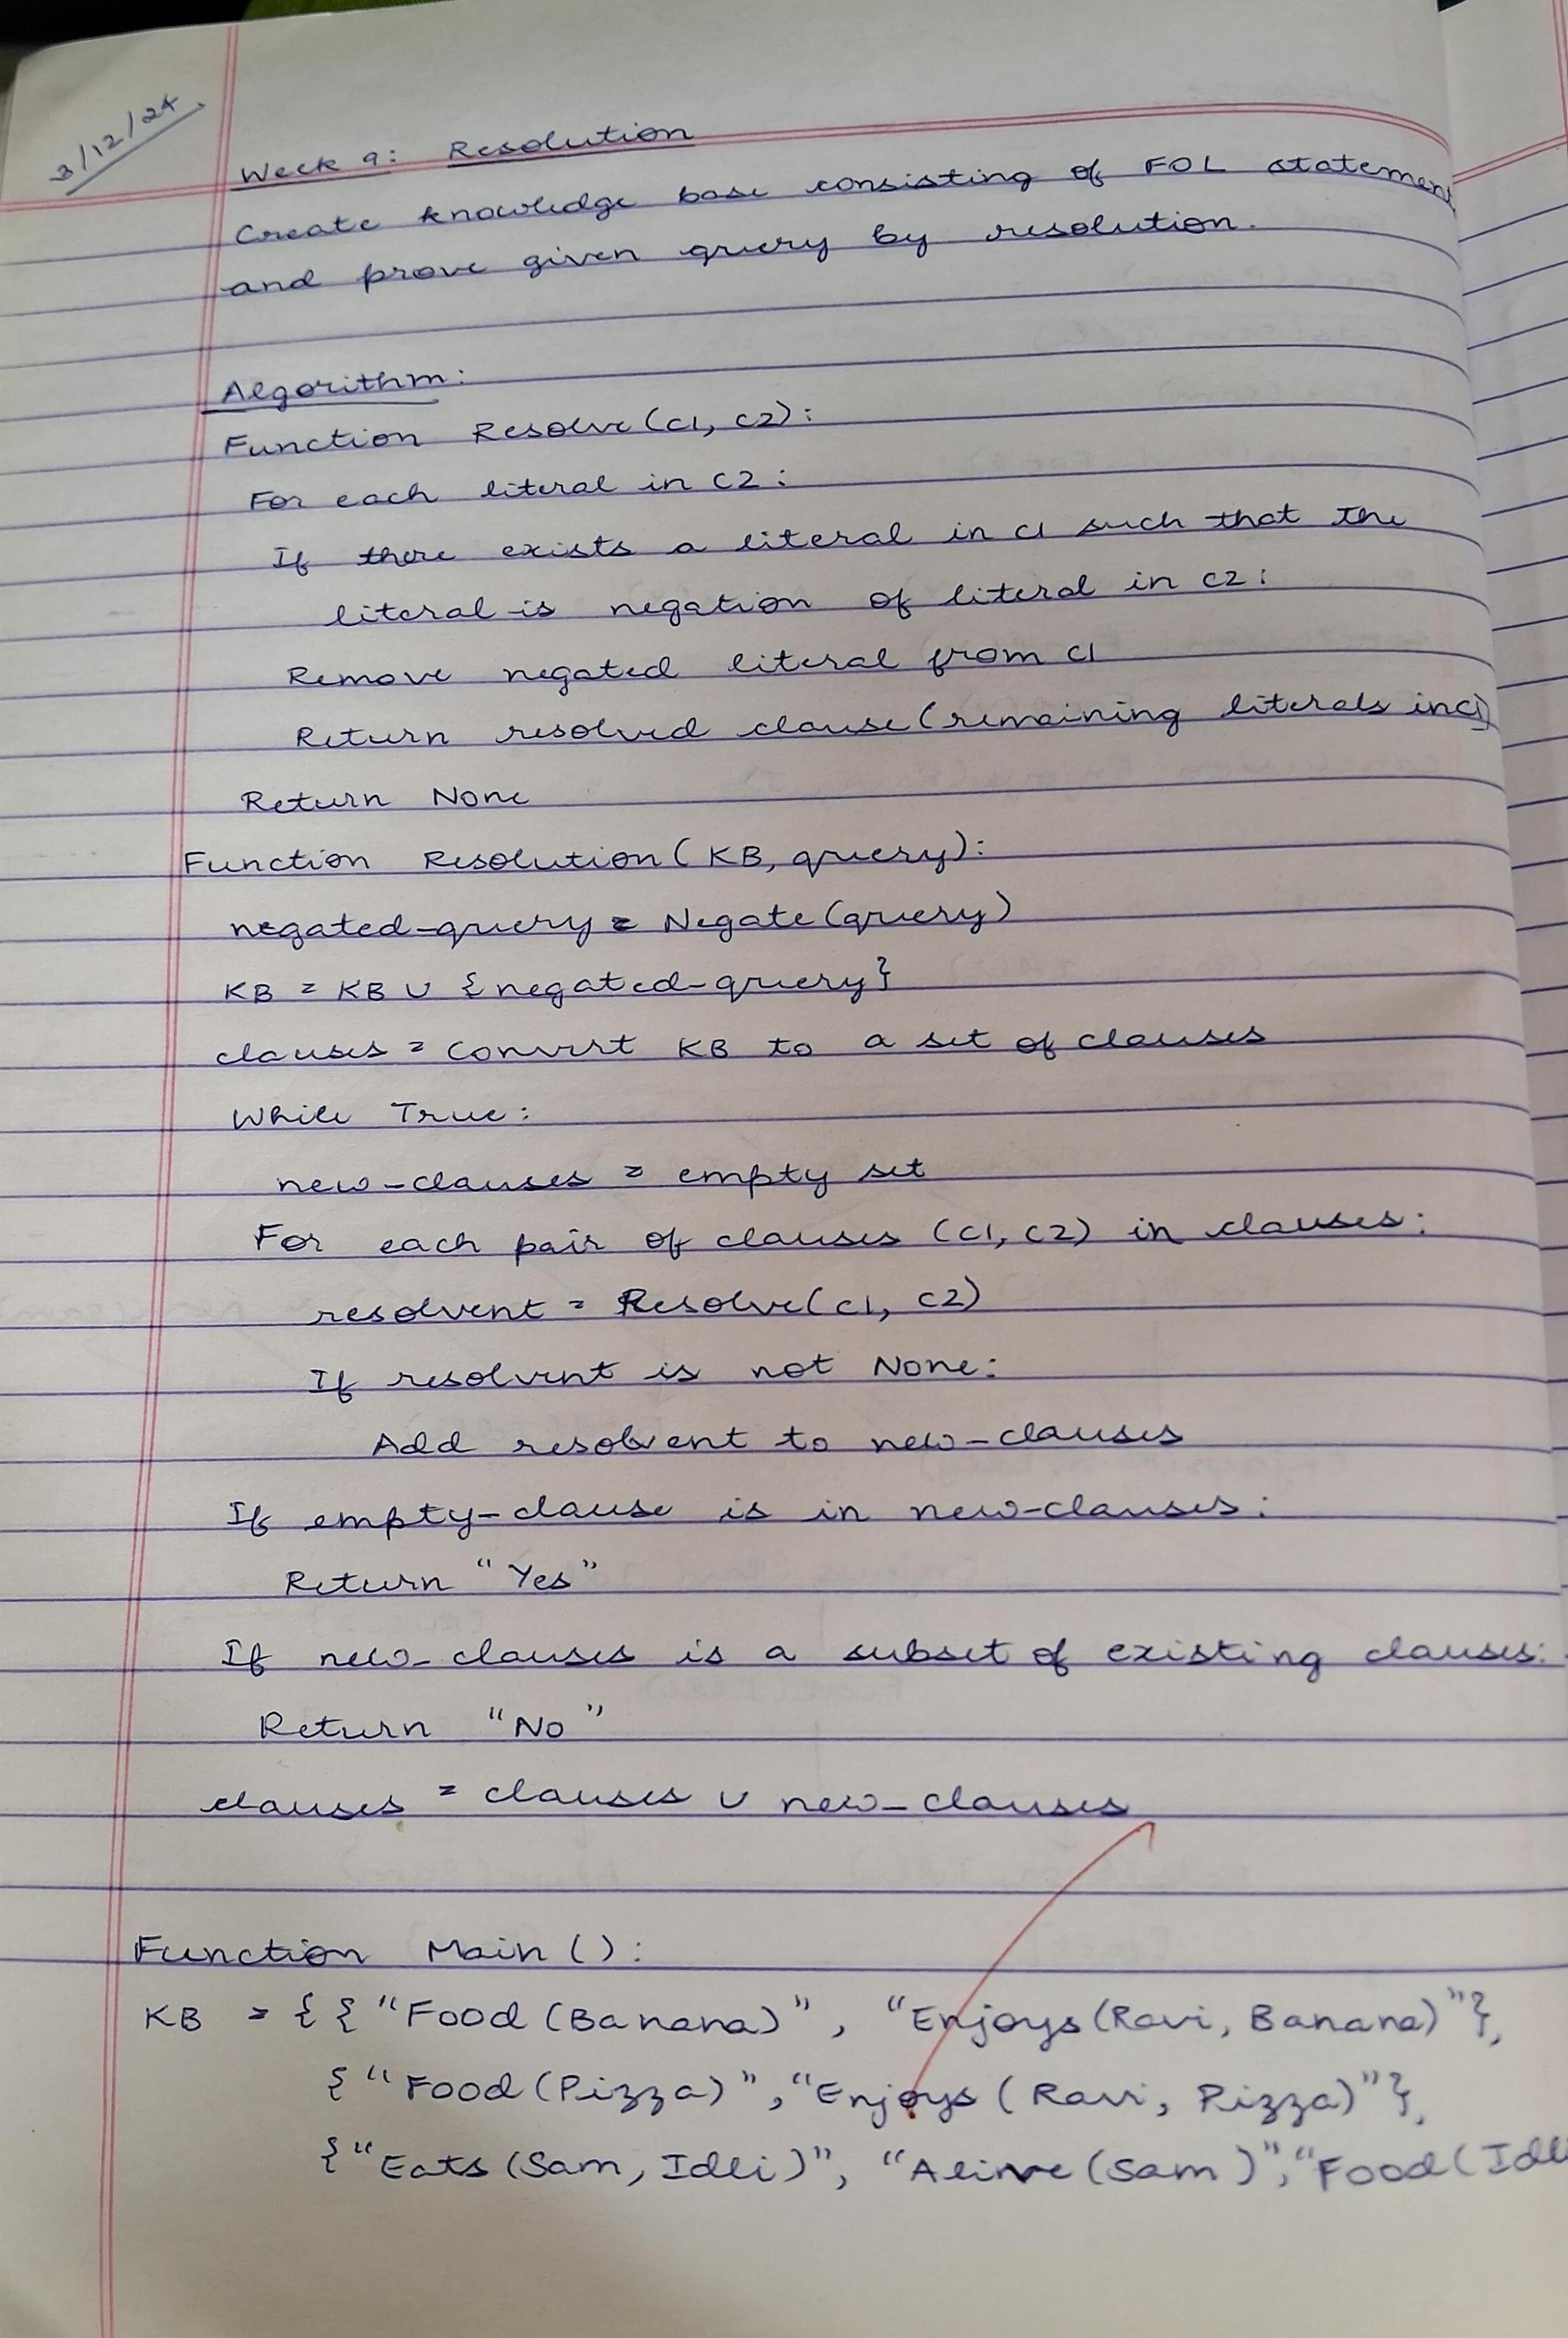 3/12/24
Week 9: Resolution
Create knowledge base consisting of FOL statement
and prove given query by resolution.
Algorithm:
Function Resolve(C1, C2):
For each literal in C2:
If there exists a literal in C1 such that the
literal is negation of literal in C2:
Remove negated literal from C1
Return resolved clause (remaining literals in C1)
Return None
Function Resolution(KB, query):
negated-query = Negate(query)
KB = KB ∪ {negated-query}
clauses = Convert KB to a set of clauses
While True:
new-clauses = empty set
For each pair of clauses (C1, C2) in clauses:
resolvent = Resolve(C1, C2)
If resolvent is not None:
Add resolvent to new-clauses
If empty-clause is in new-clauses:
Return "Yes"
If new-clauses is a subset of existing clauses:
Return "No"
clauses = clauses ∪ new-clauses
Function Main():
KB = {{"Food(Banana)", "Enjoys(Ravi, Banana)"},
{"Food(Pizza)", "Enjoys(Ravi, Pizza)"},
{"Eats(Sam, Idli)", "Alive(Sam)", "Food(Idli